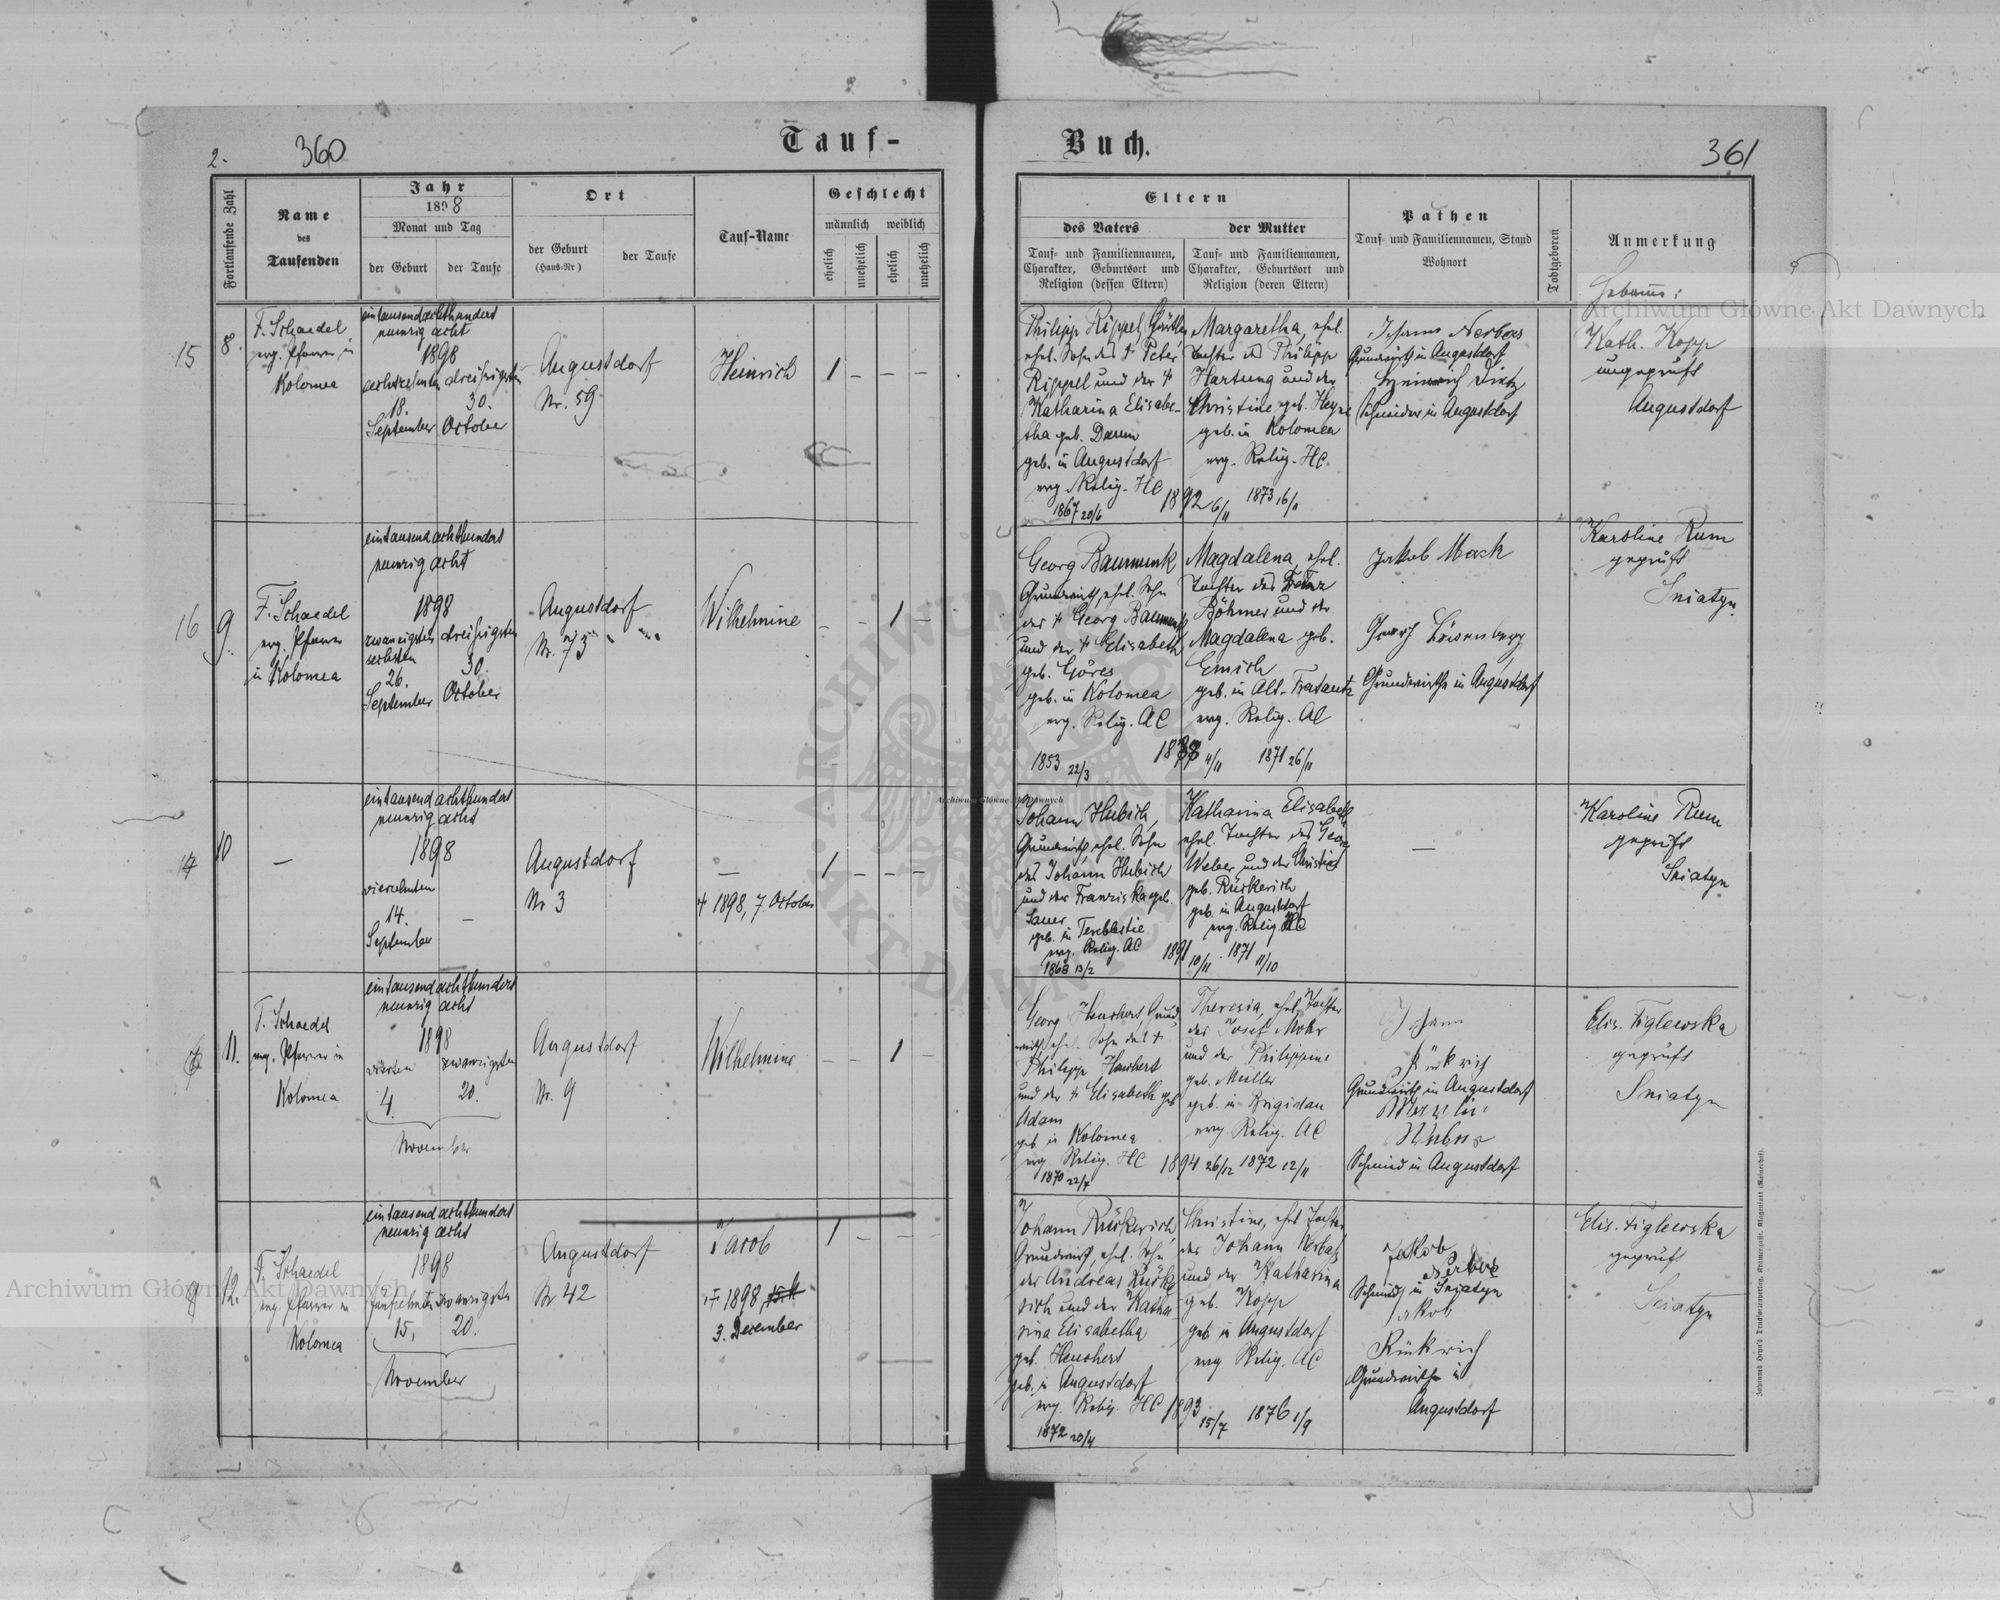 2.
360
Tauf-
Fortlaufende Zahl
Name
des
Taufenden
Jahr
1898
Monat und Tag
der Geburt
der Taufe
Ort
der Geburt
(Haus-Nr)
der Taufe
Tauf-Name
Geschlecht
männlich
weiblich
ehelich
unehelich
ehelich
unehelich
15
8.
F. Schaedel
evg. Pfarrer in
Kolomea
eintausendachthundert
neunzig acht
1898
achtzehnten dreißigsten
18.
30.
September
October
Augustdorf
Nr. 59
Heinrich
1 – – –
16
9.
F. Schaedel
evg. Pfarrer
in Kolomea
eintausendachthundert
neunzig acht
1898
zwanzigsten dreißigsten
sechsten
26.
30.
September
October
Augustdorf
Nr. 73
Wilhelmine
– – 1 –
10
–
eintausendachthundert
neunzig acht
1898
vierzehnten
14.
–
September
Augustdorf
Nr 3
–
† 1898, 7. October
1 – – –
11.
F. Schaedel
evg. Pfarrer in
Kolomea
eintausendachthundert
neunzig acht
1898
vierten
zwanzigsten
4.
20.
November
Augustdorf
Nr. 9
Wilhelmine
– – 1 –
12.
F. Schaedel
evg. Pfarrer in
Kolomea
eintausendachthundert
neunzig acht
1898
fünfzehnten zwanzigsten
15.
20.
November
Augustdorf
Nr 42
Jacob
† 1898
3. December
1 – – –
Buch.
361
Eltern
des Vaters
Tauf- und Familiennamen,
Charakter, Geburtsort und
Religion (dessen Eltern)
der Mutter
Tauf- und Familiennamen,
Charakter, Geburtsort und
Religion (deren Eltern)
Pathen
Tauf- und Familiennamen, Stand
Wohnort
Todtgeboren
Anmerkung
Hebamme:
Philipp Rippel,
ehel. Sohn des † Peter
Rippel und der †
Katharina Elisabe-
tha geb. Daum
geb. in Augustdorf
evg. Relig. HC
1867 20/6
1892 6/11
Margaretha, ehel.
Tochter des Philipp
Hartung und der
Christine geb.
geb. in Kolomea
evg. Relig. HC
1873 16/11
Johann Nerbas
Grundwirth in Augustdorf
Heinrich Dietz
Schneider in Augustdorf
Kath. Kopp
ungeprüft
Augustdorf
Georg Baumunk
Grundwirth, ehel. Sohn
der † Georg Baumunk
und der † Elisabeth
geb. Göres
geb. in Kolomea
evg. Relig. AC
1853 22/3
4/11
Magdalena, ehel.
Tochter des
Böhmer und der
Magdalena geb.
Emich
geb. in Alt-Fratautz
evg. Relig. AC
1871 26/11
Jakob Mack
Grundwirthe in Augustdorf
Karoline Rum
geprüft
Sniatyn
Johann Hubich,
Grundwirth, ehel. Sohn
des Johann Hubich
und der Franziska geb.
Sauer
geb. in Tereblestie
evg. Relig. AC
1868 13/2
1891 10/11
Katharina Elisabeth
ehel. Tochter des Georg
Weber und der Christine
geb. Rückerich
geb. in Augustdorf
evg. Relig. HC
1871 11/10
–
Karoline Rum
geprüft
Sniatyn
Georg Heuchert, Grund
wirth, ehel. Sohn des †
Philipp Heuchert
und der † Elisabeth geb
Adam
geb in Kolomea
evg Relig. HC
1870 22/7
1894 26/12
Theresia, ehel. Tochter
des Josef Mohr
und der Philippine
geb. Müller
geb. in Brigidau
evg Relig. AC
1872 12/11
Johann
Rückrich
Grundwirth in Augustdorf
Schmied in Augustdorf
Elis. Figlewska
geprüft
Sniatyn
Johann Rückerich
Grundwirth, ehel. Sohn
der Andreas Rücke
rich und der Katha
rina Elisabetha
geb. Heuchert
geb. in Augustdorf
evg. Relig. HC
1872 20/4
1893 15/7
Christine, ehel Tochter
des Johann Nerbas
und der Katharina
geb. Kopp
geb in Augustdorf
evg Relig. AC
1876 1/9
Jakob
Nerbas
Schmied in Sniatyn
Jakob
Rückrich
Grundwirthe in
Augustdorf
Elis. Figlewska
geprüft
Sniatyn
Johannes Heyn's Drucksortenverlag, Kramergasse, Klagenfurt (Kainerhof).
Archiwum Główne Akt Dawnych
Archiwum Główne Akt Dawnych
Archiwum Główne Akt Dawnych